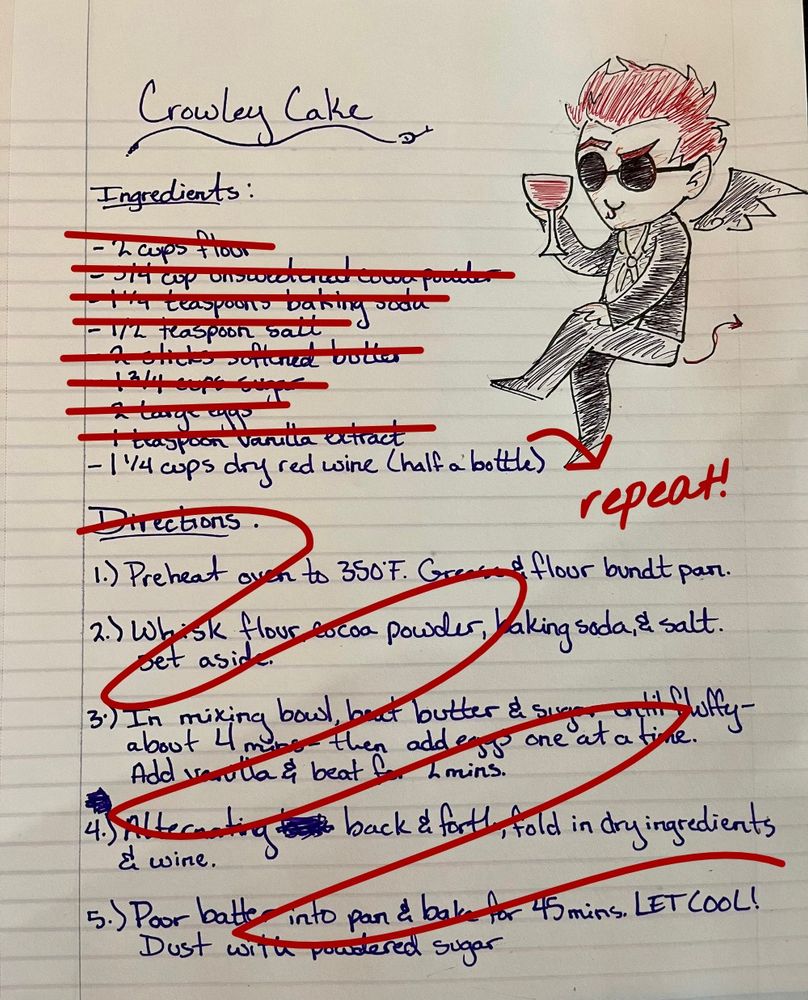 Crowley Cake
Ingredients:
- 2 cups flour
- 3/4 cup unsweetened cocoa powder
- 1 1/4 teaspoons baking soda
- 1/2 teaspoon salt
- 2 sticks softened butter
- 1 3/4 cups sugar
- 2 large eggs
- 1 teaspoon vanilla extract
- 1 1/4 cups dry red wine (half a bottle)
repeat!
Directions:
1.) Preheat oven to 350°F. Grease & flour bundt pan.
2.) Whisk flour, cocoa powder, baking soda, & salt.
Set aside.
3.) In mixing bowl, beat butter & sugar until fluffy-
about 4 mins- then add eggs one at a time.
Add vanilla & beat for 2 mins.
4.) Alternating back & forth, fold in dry ingredients
& wine.
5.) Poor batter into pan & bake for 45 mins. LET COOL!
Dust with powdered sugar